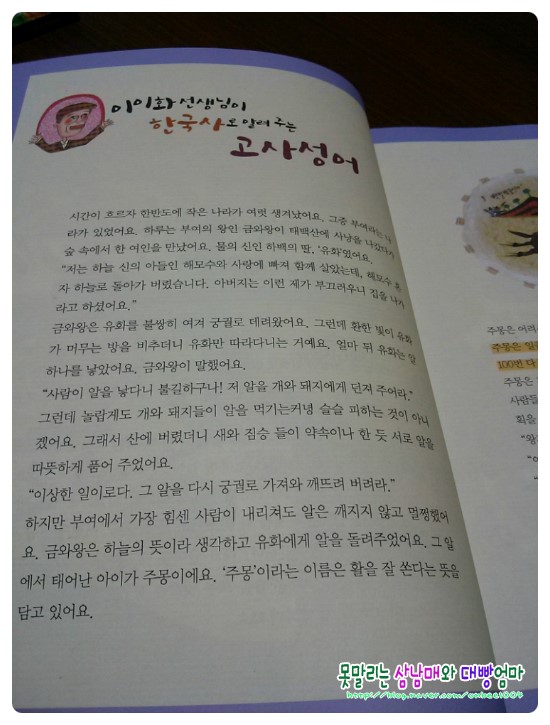 이이화 선생님이
한국사로 알려 주는
고사성어
시간이 흐르자 한반도에 작은 나라가 여럿 생겨났어요. 그중 부여라는 나
라가 있었어요. 하루는 부여의 왕인 금와왕이 태백산에 사냥을 나갔다가
숲 속에서 한 여인을 만났어요. 물의 신인 하백의 딸, ‘유화’였어요.
“저는 하늘 신의 아들인 해모수와 사랑에 빠져 함께 살았는데, 해모수 혼
자 하늘로 돌아가 버렸습니다. 아버지는 이런 제가 부끄러우니 집을 나가
라고 하셨어요.”
금와왕은 유화를 불쌍히 여겨 궁궐로 데려왔어요. 그런데 환한 빛이 유화
가 머무는 방을 비추더니 유화만 따라다니는 거예요. 얼마 뒤 유화는 알
하나를 낳았어요. 금와왕이 말했어요.
“사람이 알을 낳다니 불길하구나! 저 알을 개와 돼지에게 던져 주어라.”
그런데 놀랍게도 개와 돼지들이 알을 먹기는커녕 슬슬 피하는 것이 아니
겠어요. 그래서 산에 버렸더니 새와 짐승 들이 약속이나 한 듯 서로 알을
따뜻하게 품어 주었어요.
“이상한 일이로다. 그 알을 다시 궁궐로 가져와 깨뜨려 버려라.”
하지만 부여에서 가장 힘센 사람이 내리쳐도 알은 깨지지 않고 멀쩡했어
요. 금와왕은 하늘의 뜻이라 생각하고 유화에게 알을 돌려주었어요. 그 알
에서 태어난 아이가 주몽이에요. ‘주몽’이라는 이름은 활을 잘 쏜다는 뜻을
담고 있어요.
주몽은 어려
주몽은 일곱
100번 다
주몽은
사람들
회를
“왕
못말리는 삼남매와 대빵엄마